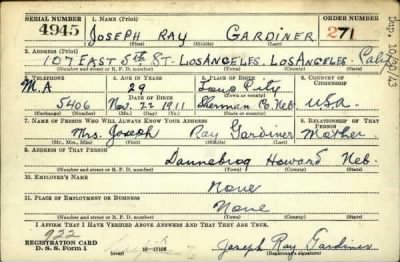 SERIAL NUMBER 1. NAME (Print) ORDER NUMBER
4945 JOSEPH RAY GARDINER 271
(First) (Middle) (Last)
2. ADDRESS (Print)
107 EAST 5th ST. LOSANGELES. LOSANGELES. Calif
(Number and street or R. F. D. number) (Town) (County) (State)
3. TELEPHONE 4. AGE IN YEARS 5. PLACE OF BIRTH 6. COUNTRY OF CITIZENSHIP
M.A 29 Loup City
DATE OF BIRTH (Town or county)
5406 Nov. 22 1911 Sherman Co Neb. USA.
(Exchange) (Number) (Mo.) (Day) (Yr.) (State or country)
7. NAME OF PERSON WHO WILL ALWAYS KNOW YOUR ADDRESS 8. RELATIONSHIP OF THAT PERSON
Mrs. Joseph Ray Gardiner Mother.
(Mr., Mrs., Miss) (First) (Middle) (Last)
9. ADDRESS OF THAT PERSON
Dannebrog Howard Neb.
(Number and street or R. F. D. number) (Town) (County) (State)
10. EMPLOYER'S NAME
None
11. PLACE OF EMPLOYMENT OR BUSINESS
None
(Number and street or R. F. D. number) (Town) (County) (State)
I AFFIRM THAT I HAVE VERIFIED ABOVE ANSWERS AND THAT THEY ARE TRUE.
922
REGISTRATION CARD
D. S. S. Form 1 (over) Joseph Ray Gardiner
(Registrant's signature)